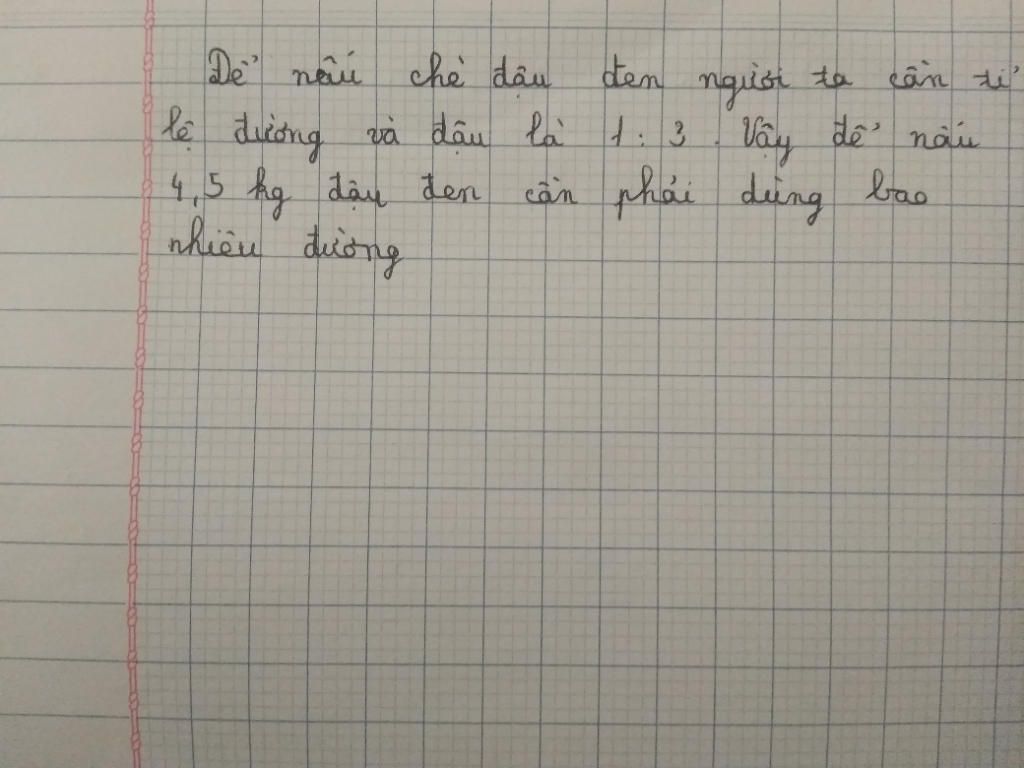 Để nấu chè đậu đen người ta cần tỉ
lệ đường và đậu là 1 : 3. Vậy để nấu
4,5 kg đậu đen cần phải dùng bao
nhiêu đường